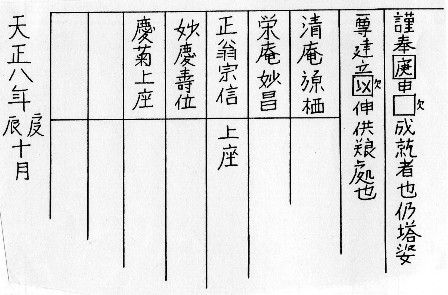 謹奉庚申□欠成就者也仍塔婆
尊建立以欠伸供粮処也
清庵源栖
栄庵妙昌
正翁宗信 上座
妙慶壽位
慶菊上座
天正八年庚辰十月